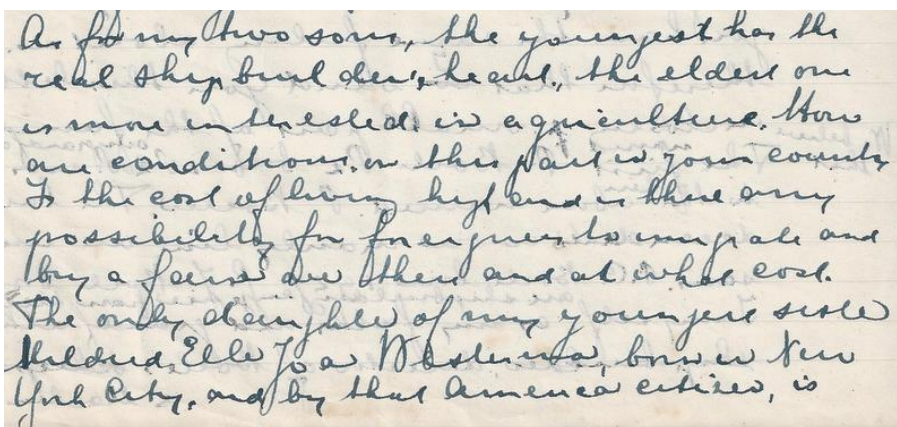 As for my two sons, the youngest has the
real shipbuilders heart, the eldest one
is more interested in agriculture. How
are conditions in this part in your country
Is the cost of living high and is there any
possibility for foreigners to emigrate and
buy a farm over there and at what cost.
The only daughter of my youngest sister
Mildred Ella Westerma, born in New
York City, and by that America citizen, is